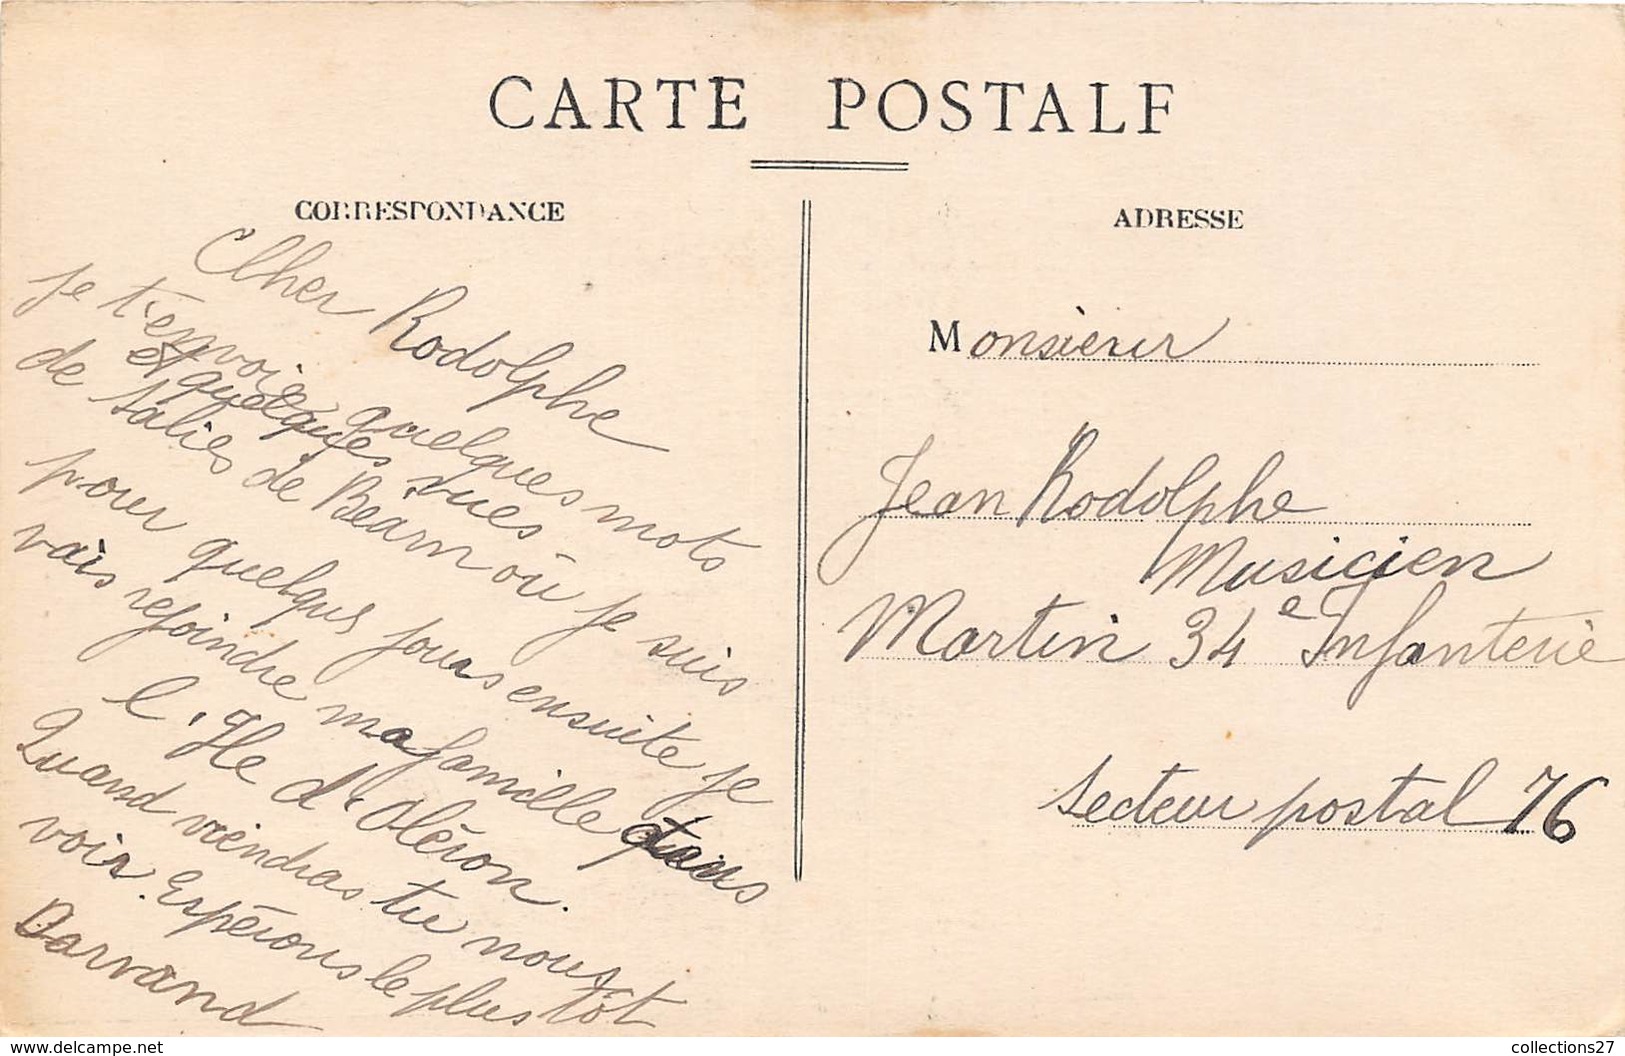 CARTE POSTALE
CORRESPONDANCE
Cher Rodolphe
Je t'envoie quelques mots
et quelques vues
de Salies de Béarn où je suis
pour quelques jours ensuite je
vais rejoindre ma famille dans
l'Ile d'Oléron.
Quand viendras tu nous
voir. Espérons le plus tôt
Darvand
ADRESSE
Monsieur
Jean Rodolphe
Musicien
Martin 34e Infanterie
Secteur postal 76
delcampe.net
collections27